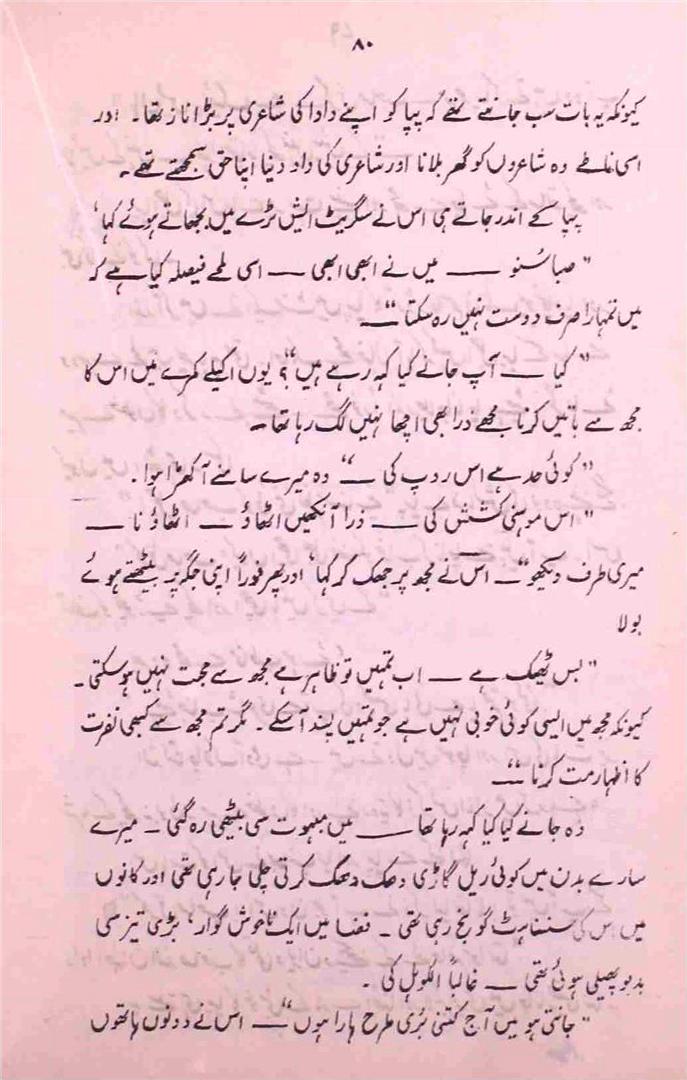 ۸۰
کیونکہ یہ بات سب جانتے تھے کہ پپا کو اپنے دادا کی شاعری پر بڑا ناز تھا۔ اور
اسی ناطے وہ شاعروں کو گھر بلانا اور شاعری کی داد دینا اپنا حق سمجھتے تھے۔
پپا کے اندر جاتے ہی اس نے سگریٹ ایش ٹرے میں بجھاتے ہوئے کہا،
"صبا سُنو —— میں نے ابھی ابھی — اسی لمحے فیصلہ کیا ہے کہ
میں تمہارا صرف دوست نہیں رہ سکتا"—
"کیا —— آپ جانے کیا کہہ رہے ہیں"؟ یوں اکیلے کمرے میں اس کا
مجھ سے باتیں کرنا مجھے ذرا بھی اچھا نہیں لگ رہا تھا۔
"کوئی حد ہے اس روپ کی —" وہ میرے سامنے آ کھڑا ہوا۔
"اس موہنی کشش کی —— ذرا آنکھیں اٹھاؤ — اٹھاؤ نا —
میری طرف دیکھو"— اس نے مجھ پر جھک کر کہا، اور پھر فوراً اپنی جگہ پر بیٹھتے ہوئے
بولا
"بس ٹھیک ہے — اب تمہیں تو ظاہر ہے مجھ سے محبت نہیں ہو سکتی۔
کیونکہ مجھ میں ایسی کوئی خوبی نہیں ہے جو تمہیں پسند آ سکے۔ مگر تم مجھ سے کبھی نفرت
کا اظہار مت کرنا"—
وہ جانے کیا کیا کہہ رہا تھا —— میں مبہوت سی بیٹھی رہ گئی۔ میرے
سارے بدن میں کوئی ریل گاڑی دھک دھک کرتی چلی جا رہی تھی اور کانوں
میں اس کی سنسناہٹ گونج رہی تھی۔ فضا میں ایک ناخوش گوار، بڑی تیز سی
بدبو پھیلی ہوئی تھی — غالباً الکوہل کی۔
"جانتی ہو میں آج کتنی بُری طرح ہارا ہوں"— اس نے دونوں ہاتھوں